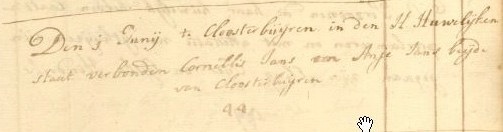 Den 3 Junij te Cloosterbuijren in den H Huwelijken
staat verbonden Cornellis Jans en Anje Jans beijde
van Cloosterbuijren
44